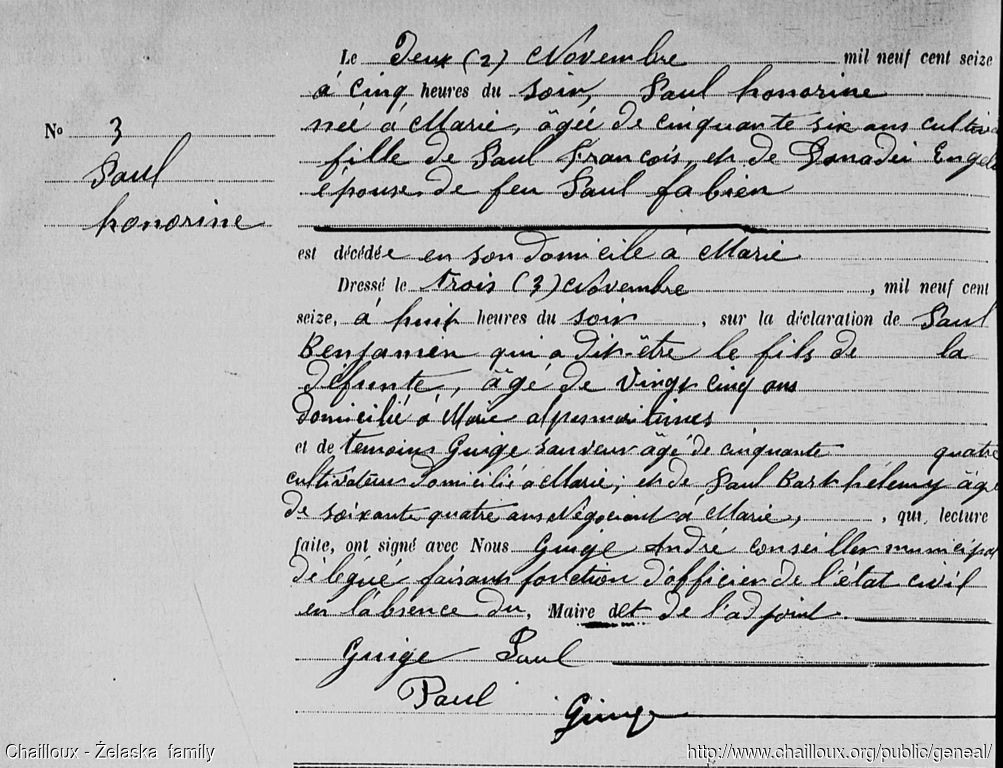 Le Deux (2) Novembre mil neuf cent seize
à Cinq heures du soir, Paul honorine
née à Marie, âgée de cinquante six ans
fille de Paul François, et de Donadei
épouse de feu Paul fabien
N° 3
Paul
honorine
est décédée en son domicile à Marie
Dressé le trois (3) Novembre, mil neuf cent
seize, à huit heures du soir, sur la déclaration de Paul
Benjamin qui a dit être le fils de la
défunte, âgé de vingt cinq ans
domicilié à Marie alpesmaritimes
et de temoins Guige sauveur âgé de cinquante quatre
cultivateur domicilié à Marie; et de Paul Barthélemy âgé
de soixante quatre ans Négociant à Marie, , qui, lecture
faite, ont signé avec Nous Guige André conseiller municipal
délégué faisant fonction d'officier de l'état civil
en l'absence du, Maire et de l'adjoint.
Guige Paul
Paul Guige
Chailloux - Želaska family
http://www.chailloux.org/public/geneal/